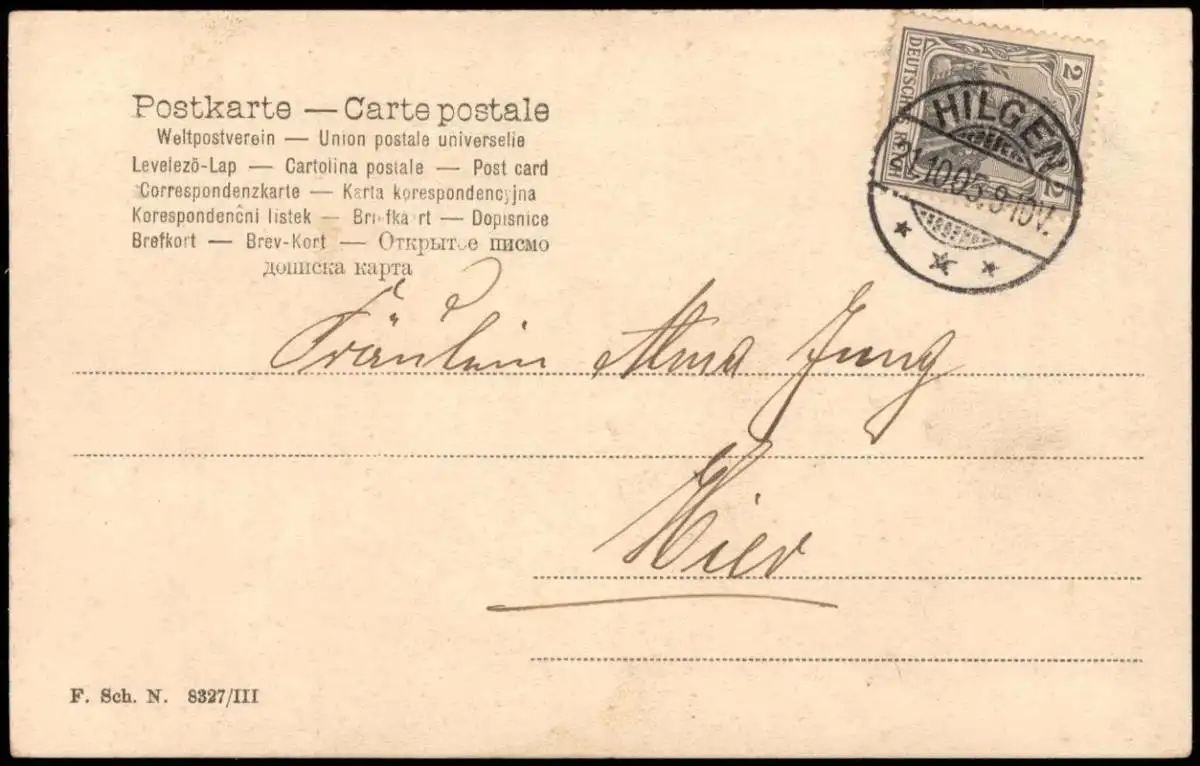 Postkarte — Carte postale
Weltpostverein — Union postale universelle
Levelezö-Lap — Cartolina postale — Post card
Correspondenzkarte — Karta korespondencyjna
Korespondenčni listek — Briefkaart — Dopisnice
Brefkort — Brev-Kort — Открытое писмо
дописка карта
2
DEUTSCHES REICH
2
HILGEN
9-10V.
Fräulein Alma Jung
Hier
F. Sch. N. 8327/III